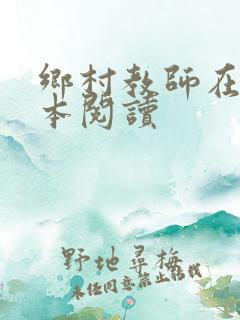 鄉村教師在
本閱讀
野地尋梅
未經同意禁止轉載